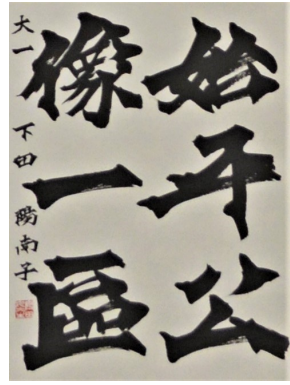 始平公
像一區
大一 下田 陽南子